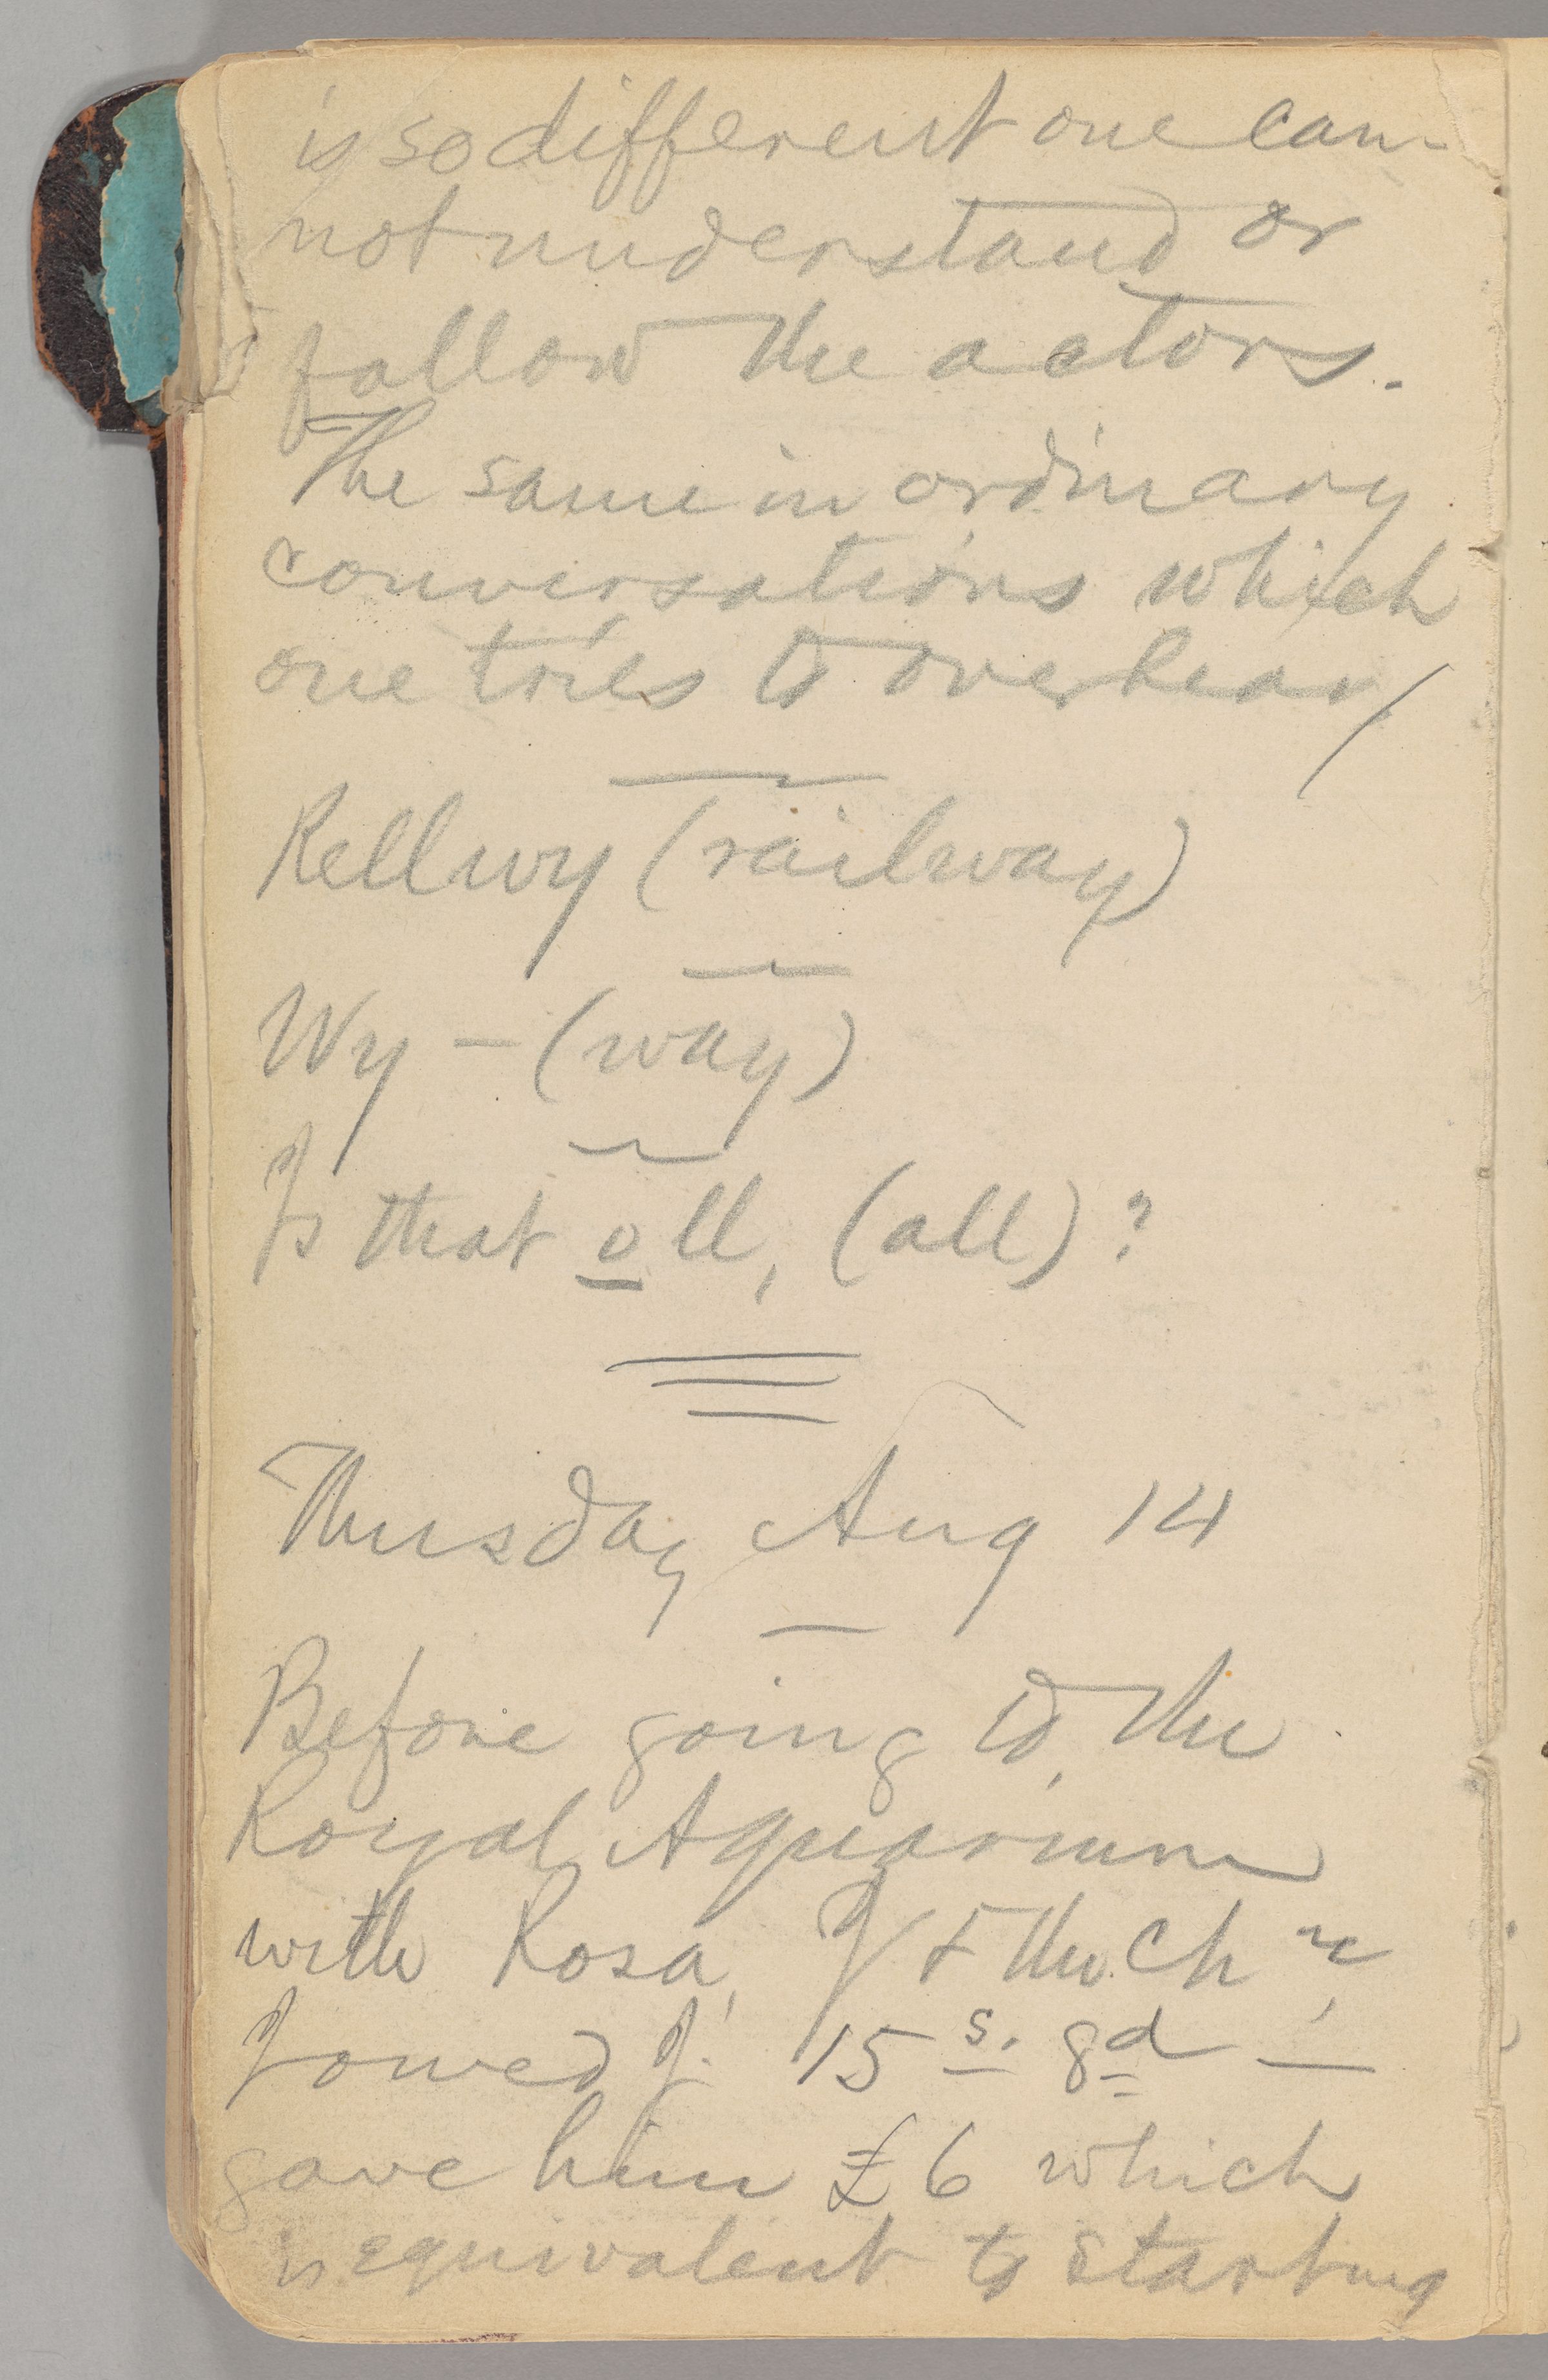 is so different one can-
not understand or
follow the actors.
The same in ordinary
conversations which
one tries to overhear.
Rellwy (railway)
Wy – (way)
Is that oll, (all)?
Thursday Aug 14
Before going to the
Royal Aquarium
with Rosa, J + the Chn,
I owed J. 15s. 8d —
gave him £6 which
is equivalent to starting